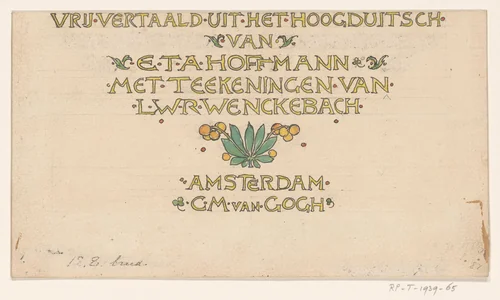 VRIJ·VERTAALD·UIT·HET·HOOGDUITSCH·
·VAN·
·E·T·A·HOFFMANN·
·MET·TEEKENINGEN·VAN·
·L·W·R·WENCKEBACH·
·AMSTERDAM·
·C·M·VAN·GOGH·
RP-T-1929-65